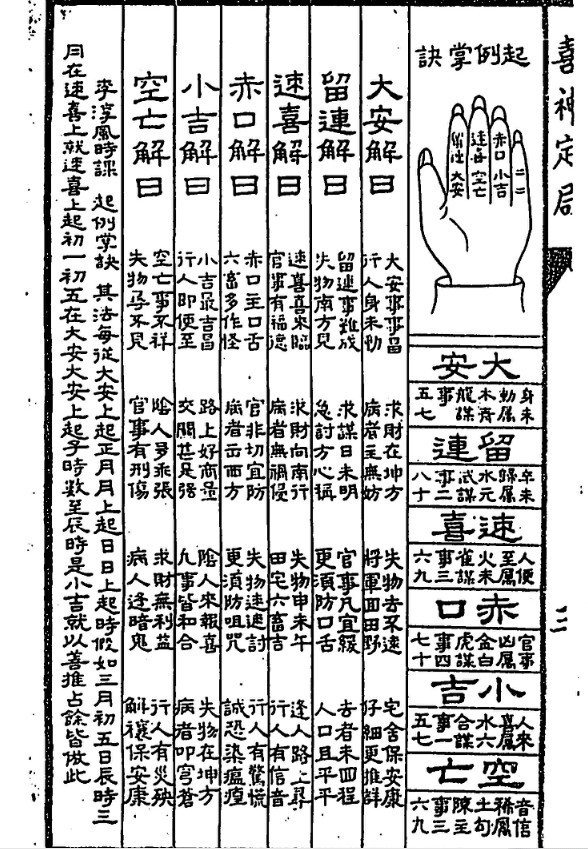 喜神定局
三
起例掌訣
赤口 小吉
速喜 空亡
留連 大安
大安
身未
動属
木青
龍謀
事
五七
留連
卒未
歸属
水元
武謀
事二
八十
速喜
人便
至属
火朱
雀謀
事三
六九
赤口
官事
凶属
金白
虎謀
事四
七十
小吉
人來
喜属
水六
合謀
事一
五七
空亡
音信
稀属
土勾
陳主
事三
六九
大安解曰
大安事事昌 求財在坤方 失物去不遠 宅舍保安康
行人身未動 病者主無妨 將軍回田野 仔細更推詳
留連解曰
留連事難成 求謀日未明 官事凡宜緩 去者未回程
失物南方見 急討方心稱 更須防口舌 人口且平平
速喜解曰
速喜喜來臨 求財向南行 失物申未午 逢人路上尋
官事有福德 病者無禍侵 田宅六畜吉 行人有信音
赤口解曰
赤口主口舌 官非切宜防 失物速速討 行人有驚慌
六畜多作怪 病者出西方 更須防咀咒 誠恐染瘟㾮
小吉解曰
小吉最吉昌 路上好商量 陰人來報喜 失物在坤方
行人即便至 交關甚是強 凡事皆和合 病者叩穹蒼
空亡解曰
空亡事不祥 陰人多乖張 求財無利益 行人有災殃
失物尋不見 官事有刑傷 病人逢暗鬼 解禳保安康
李淳風時課 起例掌訣 其法每從大安上起正月月上起日日上起時假如三月初五日辰時三
月在速喜上就速喜上起初一初五在大安大安上起子時數至辰時是小吉就以善推占餘皆倣此